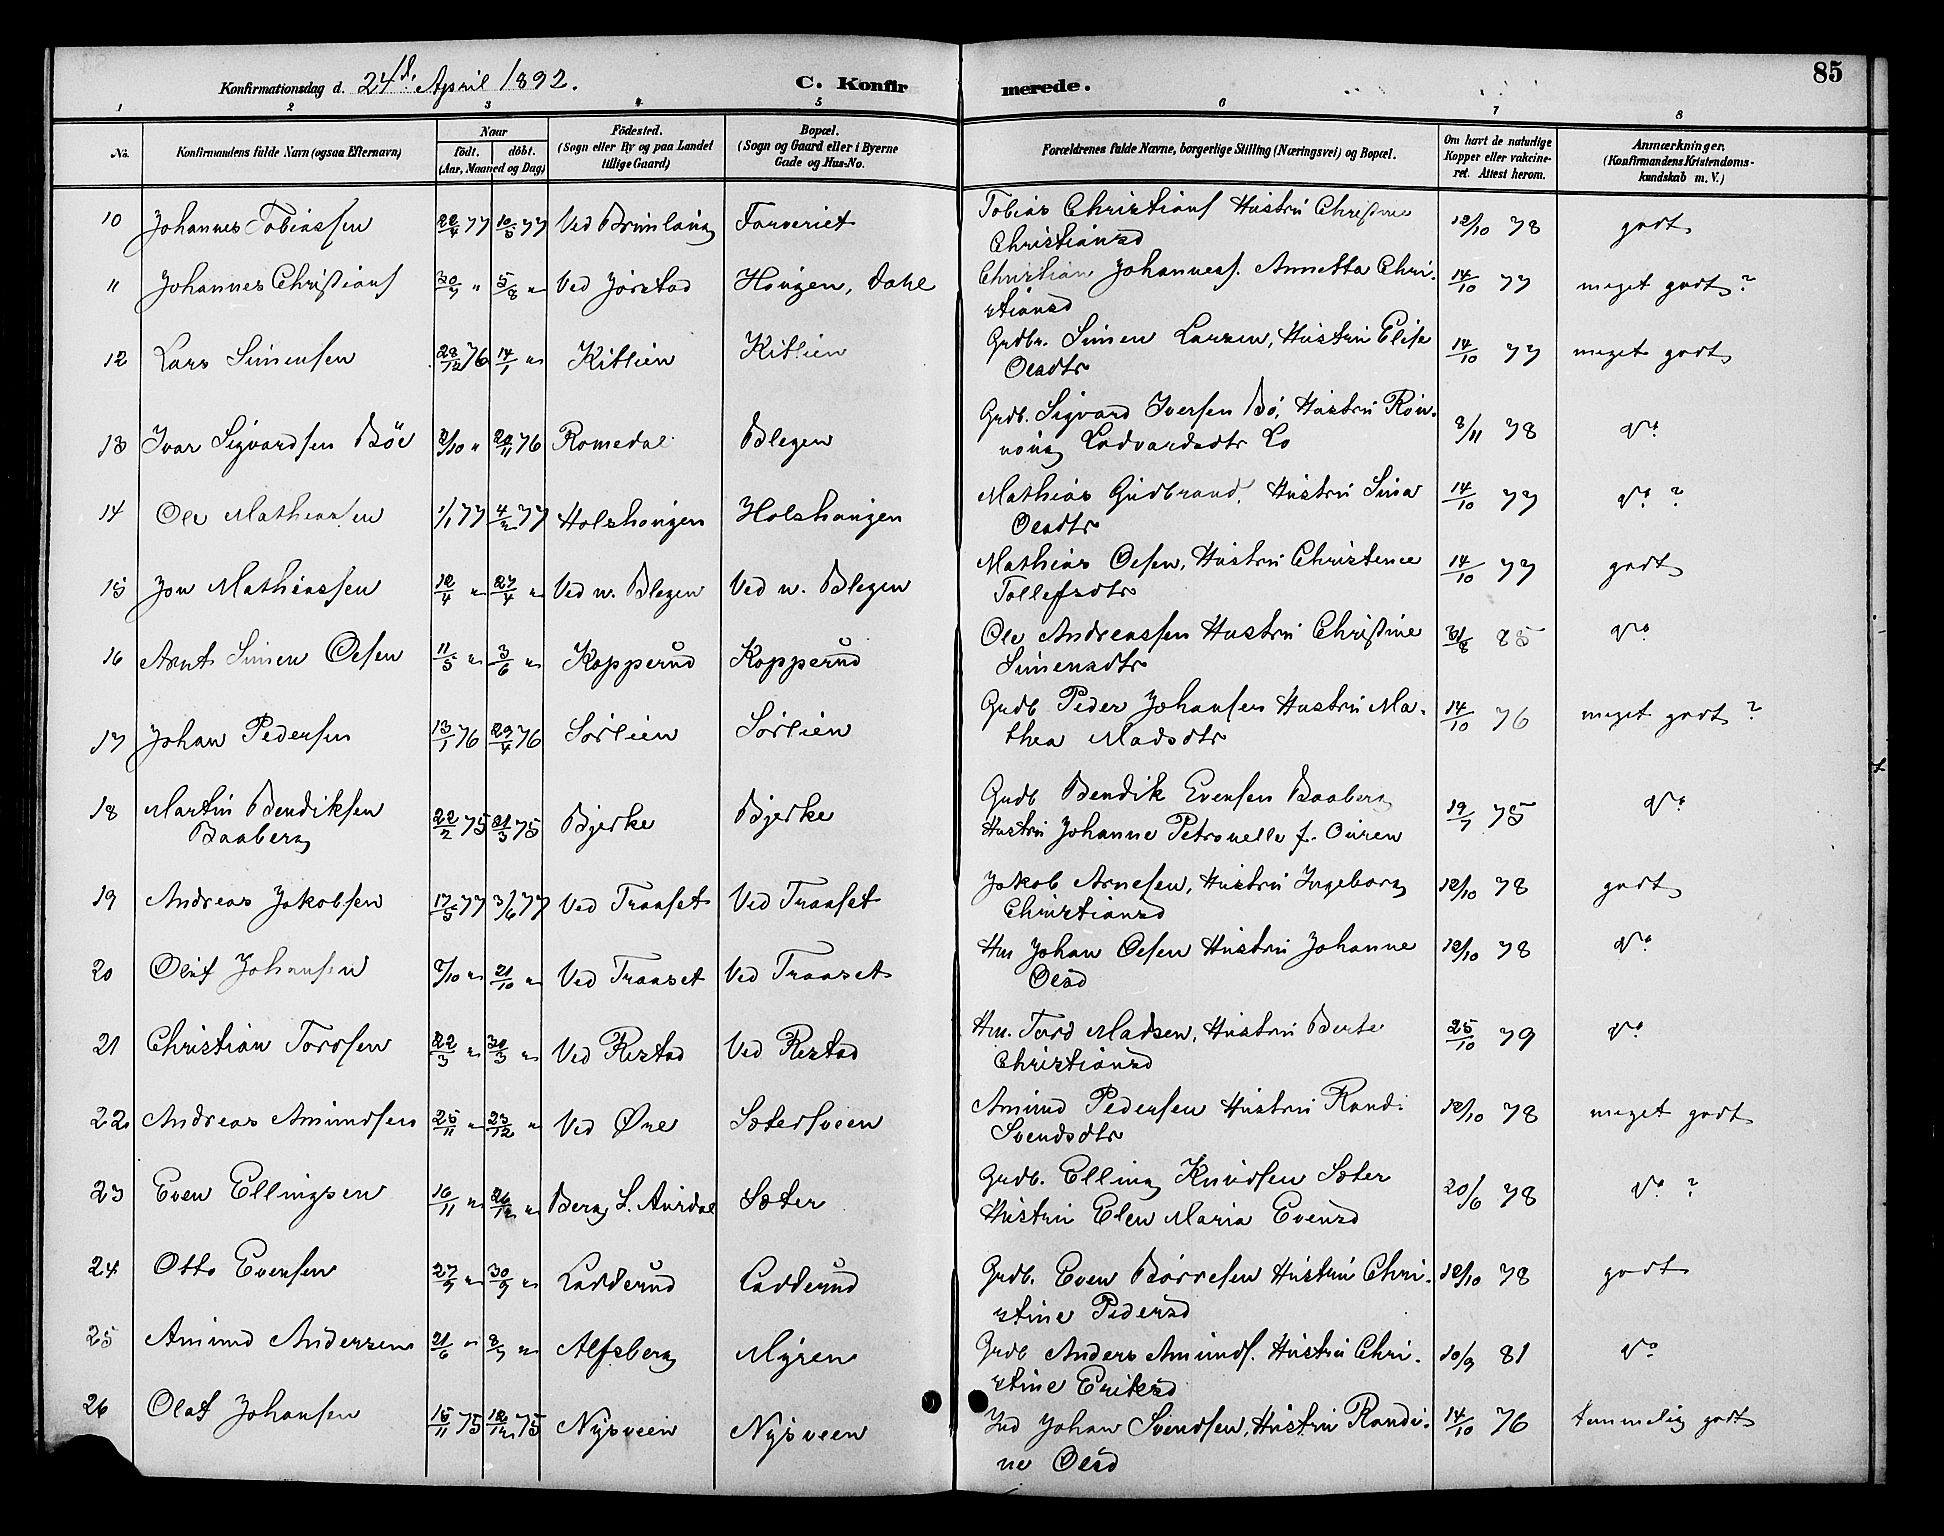 85
Konfirmationsdag d. 24d. April 1892. C. Konfirmerede.
1 2 3 4 5 6 7 8
No. Konfirmandens fulde Navn (ogsaa Efternavn) Naar født. døbt. (Aar, Maaned og Dag) Fødested. (Sogn eller By og paa Landet tillige Gaard) Bopæl. (Sogn og Gaard eller i Byerne Gade og Hus-No. Forældrenes fulde Navne, borgerlige Stilling (Næringsvei) og Bopæl. Om havt de naturlige Kopper eller vakcineret. Attest herom. Anmærkninger. (Konfirmandens Kristendomskundskab m. V.)
10 Johannes Tobiassen 22/4 77 10/5 77 Ved Farveriet Tobias Christians Hustru Christine 12/10 78 godt
Christiansd
11 Johannes Christians 30/7 " 5/8 " Ved Jørstad Hougen, Dahl Christian Johanness. Annetta Chri- 14/10 77 meget godt?
stiansd
12 Lars Simensen 28/12 76 14/1 " Kitlien Kitlien Grdbr. Simen Larsen, Hustru Elise 14/10 77 meget godt
Olsdtr
13 Ivar Sigvardsen Böe 2/10 " 20/11 76 Romedal Blegen Grdb. Sigvard Iversen Bö, Hustru Rön- 8/11 78 do
naug Lo
14 Ole Mathiassen 1/1 77 4/2 77 Holshougen Holshougen Mathias Gudbrand. Hustru Sina 14/10 77 do ?
Olsdtr
15 Jon Mathiassen 12/4 " 27/4 " Ved n. Blegen Ved n. Blegen Mathias Olsen, Hustru Christence 14/10 77 godt
Tollefsdtr
16 Arnt Simen Olsen 11/5 " 3/6 " Kopperud Kopperud Ole Andreassen Hustru Christine 31/8 85 do
Simensdtr
17 Johan Pedersen 13/1 76 29/4 76 Sörlien Sörlien Grdb Peder Johansen Hustru Ma- 14/10 76 meget godt ?
thea Madsdtr
18 Martin Bendiksen 22/2 75 21/3 75 Bjerke Bjerke Grdb Bendik Evensen Baaberg 19/7 75 do
Baaberg Hustru Johanne Petronelle f. Ouren
19 Andreas Jakobsen 17/5 77 3/6 77 Ved Traaset Ved Traaset Jakob Arnesen, Hustru Ingeborg 12/10 78 godt
Christiansd
20 Oluf Johansen 7/10 " 21/10 " Ved Traaset Ved Traaset Hm Johan Olsen Hustru Johanne 12/10 78 do
Olsd
21 Christian Tordsen 22/3 " 30/3 " Ved Restad Ved Restad Hm. Tord Madsen, Hustru Berte 25/10 79 do
Christiansd
22 Andreas Amundsen 25/11 " 23/12 " Ved Øre Sætersveen Amund Pedersen Hustru Randi 12/10 78 meget godt
Svendsdtr
23 Even Ellingsen 16/11 " 26/12 " Berg S. Aurdal Sæter Grdb. Elling Knudsen Sæter 20/6 78 do ?
Hustru Elen Maria Evensd
24 Otto Evensen 27/9 " 30/9 " Ladderud Ladderud Grdb. Even Børresen Hustru Chri- 12/10 78 godt
stine Pedersd
25 Amund Andersen 21/6 " 8/7 " Alfsberg Myren Grdb Anders Amunds. Hustru Chri- 10/9 81 do
stine Eriksd
26 Olaf Johansen 15/11 75 12/12 75 Nysveen Nysveen Ind Johan Svendsen, Hustru Randi- 14/10 76 temmelig godt
ne Olsd